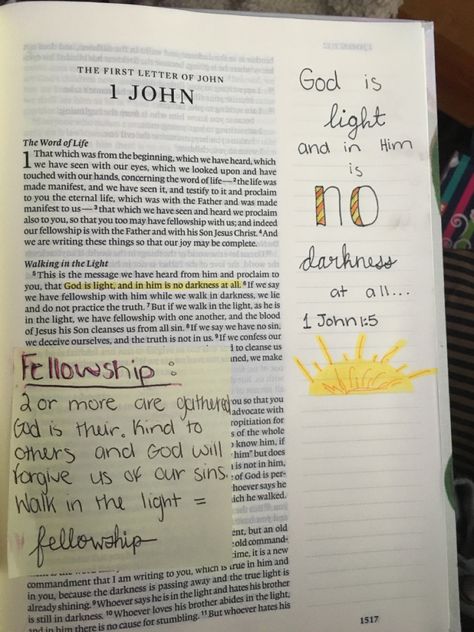 THE FIRST LETTER OF JOHN
1 JOHN
The Word of Life
1 That which was from the beginning, which we have heard, which
we have seen with our eyes, which we looked upon and have
touched with our hands, concerning the word of life—2 the life was
made manifest, and we have seen it, and testify to it and proclaim
to you the eternal life, which was with the Father and was made
manifest to us—3 that which we have seen and heard we proclaim
also to you, so that you too may have fellowship with us; and indeed
our fellowship is with the Father and with his Son Jesus Christ. 4 And
we are writing these things so that our joy may be complete.
Walking in the Light
5 This is the message we have heard from him and proclaim to
you, that God is light, and in him is no darkness at all. 6 If we say
we have fellowship with him while we walk in darkness, we lie
and do not practice the truth. 7 But if we walk in the light, as he is
in the light, we have fellowship with one another, and the blood
of Jesus his Son cleanses us from all sin. 8 If we say we have no sin,
we deceive ourselves, and the truth is not in us. 9 If we confess our
to cleanse us
we make
so that you
advocate with
for
of the whole
know him, if
him” but does
is not in him,
of God is per-
says he
he walked.
but an old
old command-
it is a new
is true in him and
commandment that I am writing to you, which
in you, because the darkness is passing away and the true light is
already shining. 9 Whoever says he is in the light and hates his brother
is still in darkness. 10 Whoever loves his brother abides in the light,
and in him there is no cause for stumbling. 11 But whoever hates his
Fellowship :
2 or more are gathered
God is their. Kind to
others and God will
forgive us of our sins.
Walk in the light =
fellowship
God is
light
and in Him
is
NO
darkness
at all...
1 John 1:5
1517